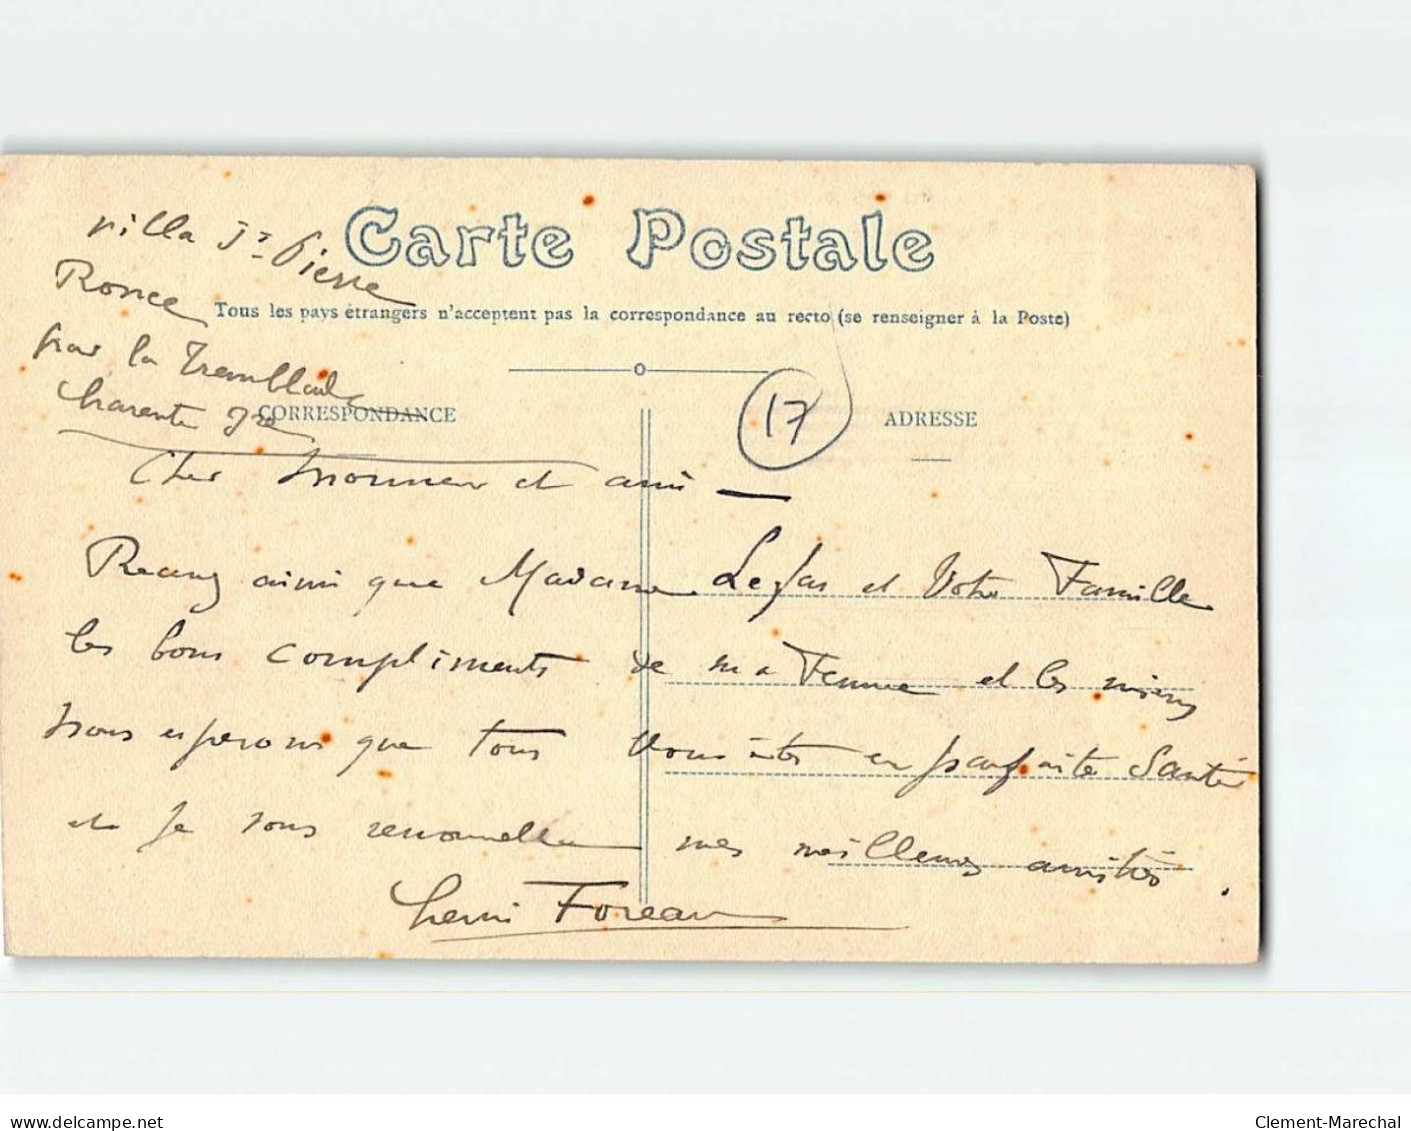 Carte Postale
villa St Pierre
Ronce
Tous les pays étrangers n'acceptent pas la correspondance au recto (se renseigner à la Poste)
par la Tremblade
Charente Ire
CORRESPONDANCE
17
ADRESSE
Cher Monsieur et ami —
Recevez ainsi que Madame Lefas et Votre Famille
les bons compliments de ma Femme et les miens
Nous esperons que tous vous êtes en parfaite Santé
et je vous renouvelle mes meilleures amitiés .
henri Foreau
www.delcampe.net
Clement-Marechal